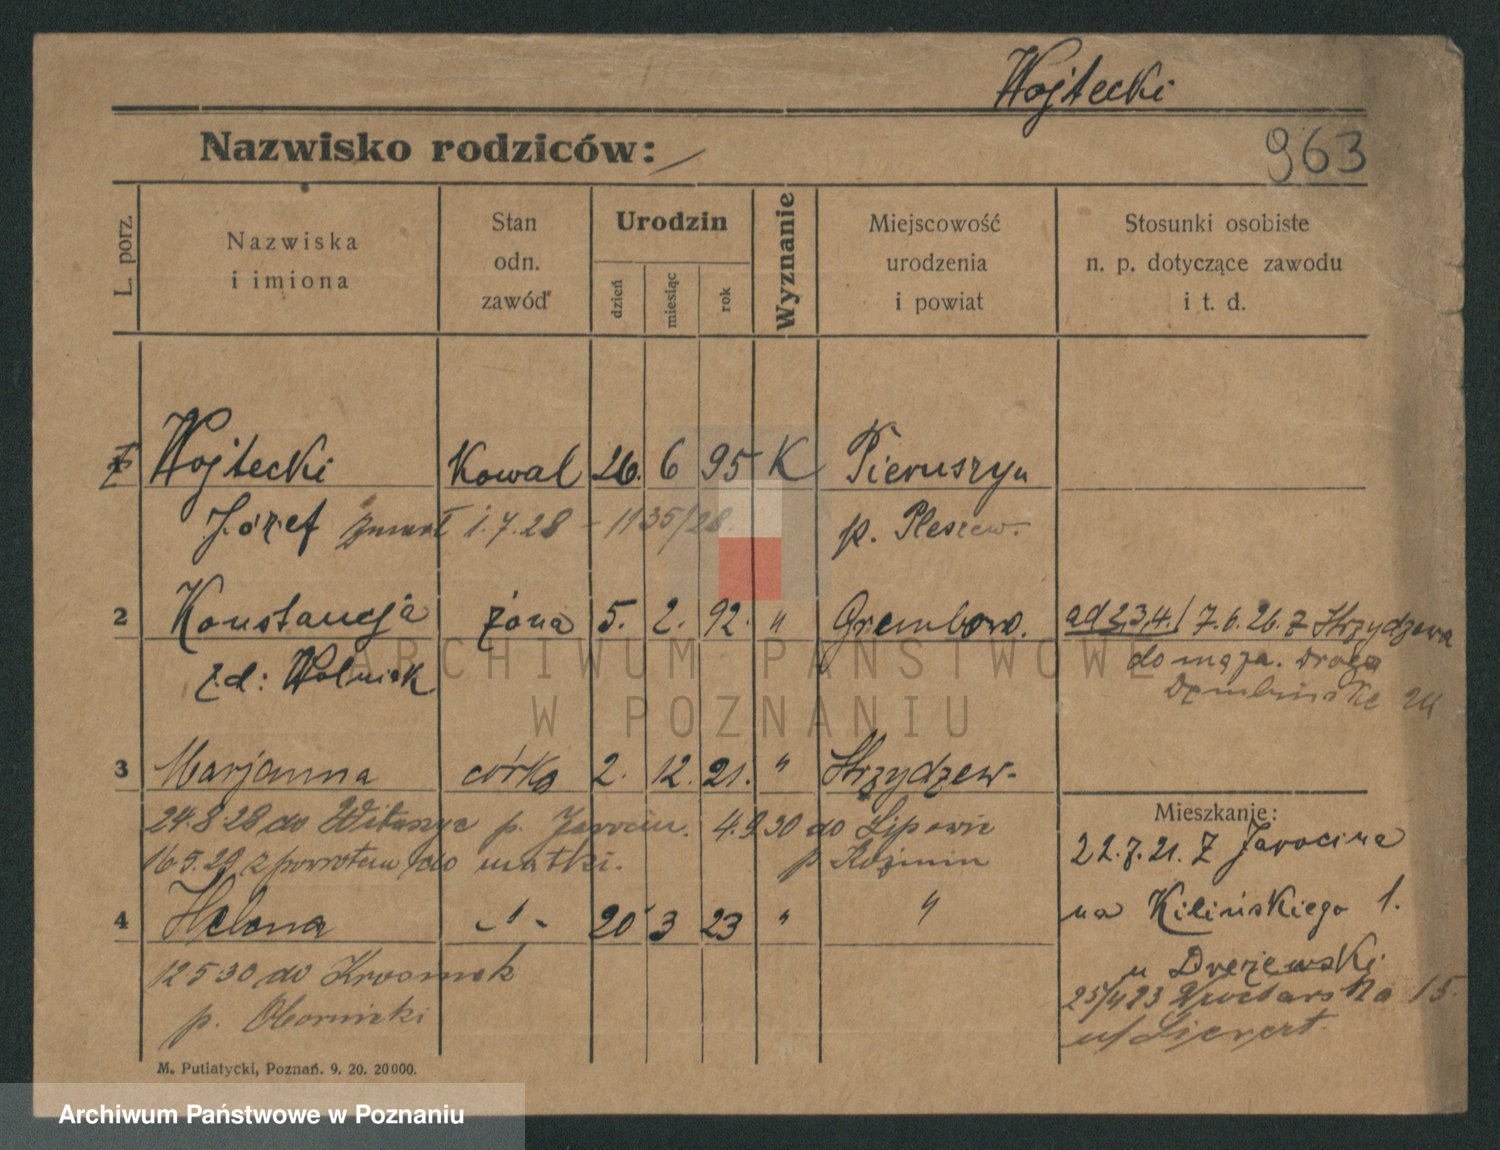 Wojtecki
Nazwisko rodziców: /
963
L. porz.
Nazwiska
i imiona
Stan
odn.
zawód
Urodzin
dzień
miesiąc
rok
Wyznanie
Miejscowość
urodzenia
i powiat
Stosunki osobiste
n. p. dotyczące zawodu
i t. d.
Wojtecki Kowal 26. 6 95 K Pieruszyn
Józef zmarł 1.7.28 - 1135/28. p. Pleszew.
2 Konstancja żona 5. 2. 92. " Grembow.
z d: Wolniak
ad 2,3,4./ 7.6.26. z Strzydzewa
do męża. Droga
Dembińska 24
3 Marjanna córka 2. 12. 21. " Strzydzew-
24.8.28 do Witaszyc p. Jarocin. 4.9.30 do Lipowic
16.5.29 z powrotem do matki. p Koźmin
4 Helena -"- 20 3 23 " "
12 5 30 do p. Oborniki
Mieszkanie:
22.7.21. z Jarocina
na Kilińskiego 1.
u Drzejewski
25/4 23 Wrocławska 15.
u/ Siewert.
M. Putiatycki, Poznań. 9. 20. 20000.
ARCHIWUM PAŃSTWOWE
W POZNANIU
Archiwum Państwowe w Poznaniu